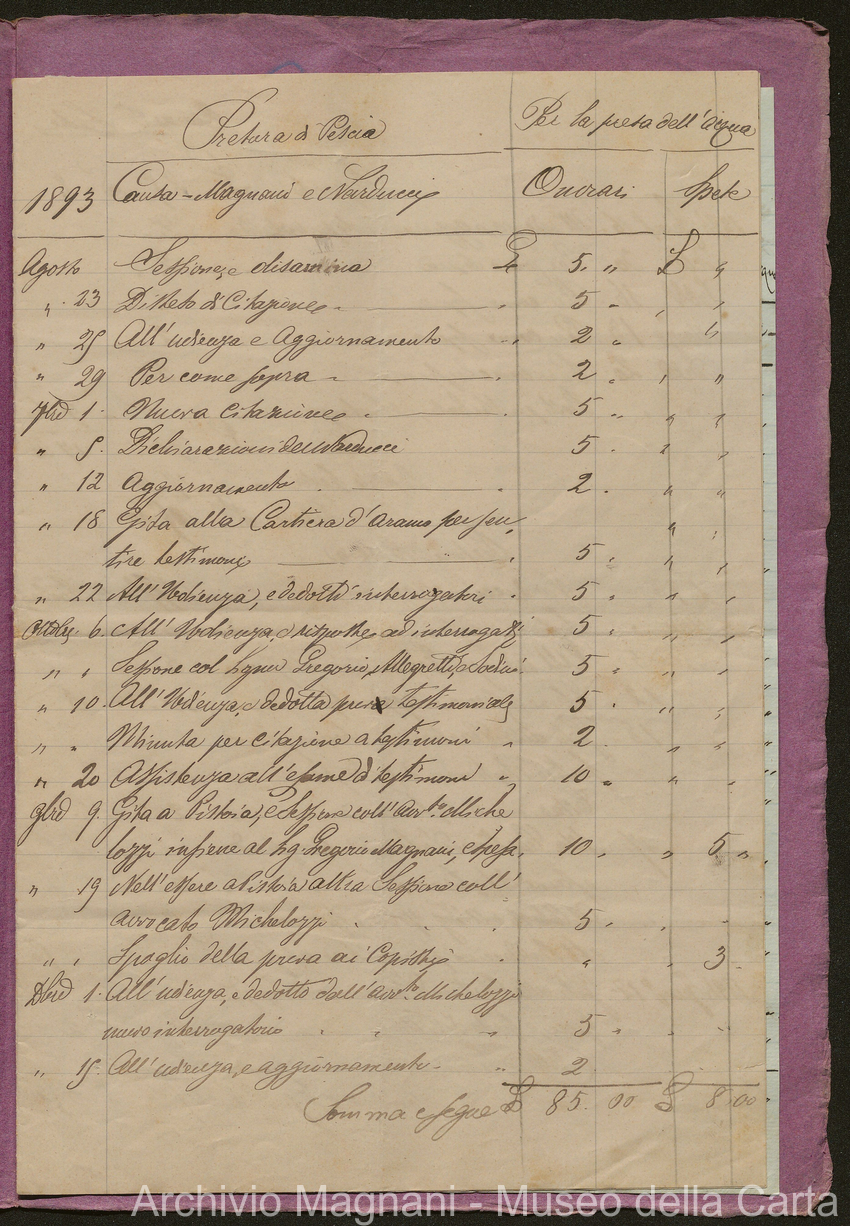 Pretura di Pescia Per la presa dell'acqua
1893 Causa - Magnani e Narducci Onorari Spese
Agosto Sessione, e disamina £ 5. " £ "
" 23 Citazione 5 " " "
" 25 All'udienza e Aggiornamento " 2 " "
" 29 Per come sopra " 2 " " "
7bre 1. Nuova Citazione 5 " " "
" 5. Dichiarazioni del Narducci 5 " " "
" 12 Aggiornamento 2 " " "
" 18 Gita alla Cartiera d'Aramo per sen
tire testimoni 5 " " "
" 22 All'Udienza, e dedotti interrogatori " 5 " " "
Ottobre 6. All'Udienza, e risposte ad interrogatj 5 " " "
" " Sessione col Signor Gregorio, Allegretti, e 5 " " "
" 10. All'Udienza, e dedotta prova testimoniale 5 " " "
" " Minuta per citazione a testimoni " 2 " "
" 20 Assistenza all'esame di testimoni " 10 " " "
9bre 9. Gita a Pistoia, e Sessione coll'Avvto. Miche
lozzi insieme al Sig Gregorio Magnani, e spese. 10 " " 5 "
" 19 Nell'essere a Pistoia altra Sessione coll'
avvocato Michelozzi " 5 " " "
" " Spoglio della prova ai Copisti " " " 3
Dbre 1. All'udienza, e dedotto dall'Avvto. Michelozzi
nuovo interrogatorio " 5 " " "
" 15. All'udienza, e aggiornamento " 2
Somma e segue £ 85. 00 £ 8.00
Archivio Magnani - Museo della Carta